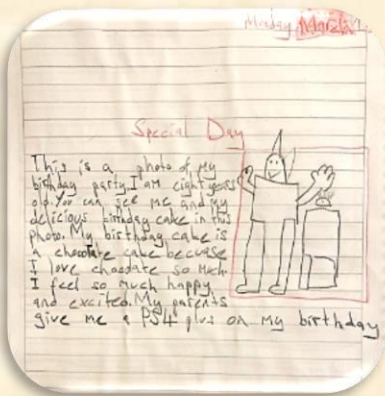 Monday March
Special Day
This is a photo of my
birthday party. I am eight years
old. You can see me and my
delicious birthday cake in this
photo. My birthday cake is
a chocolate cake becuase
I love chocolate so much.
I feel so much happy
and excited. My parents
give me a PS4 plus on my birthday